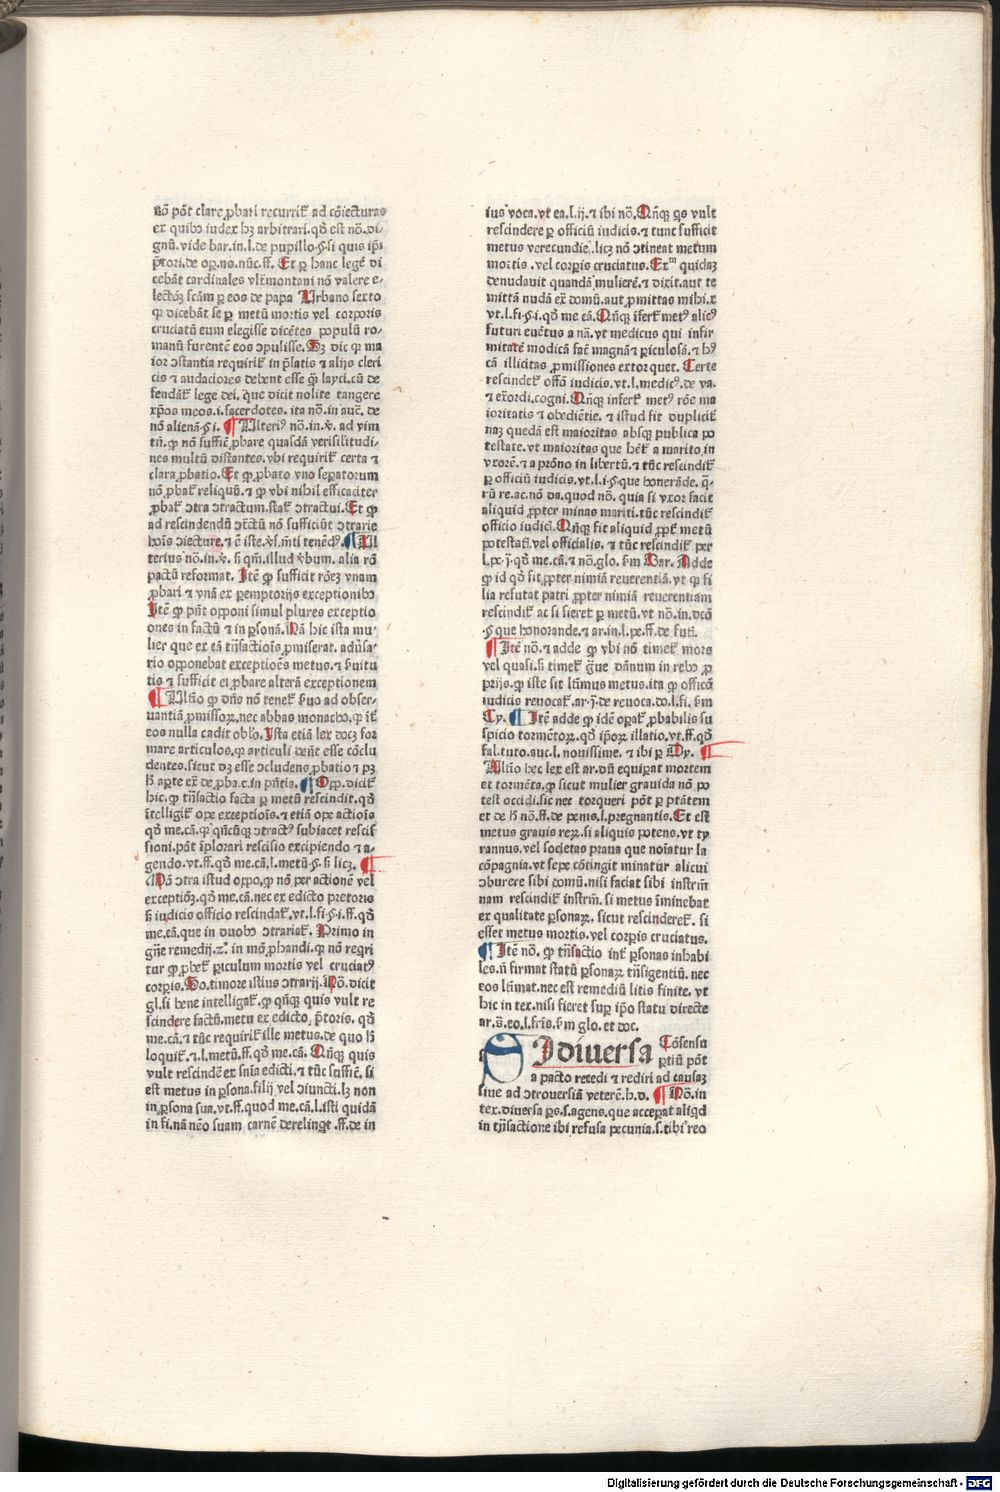 nō pōt clare ꝓbari recurrit̉ ad cōiecturas
ex quibꝰ iudex hꝫ arbitrari. qd̉ est nō. di/
gnū. vide bar. in. l. de pupillo. §. si quis ip̄i
p̄tori. de op̄. no. nūc. ff. Et ꝑ hanc legē di
cebāt cardinales vlt̄montani nō valere e/
lectōꝫ fcām ꝑ eos de papa Urbano sexto
qꝛ dicebāt se ꝑ metū mortis vel corporis
cruciatū eum elegisse dicētes populū ro/
manū furentē eos ɔpulisse. Sꝫ dic ꝙ ma
ior ɔstantia requirit̉ in p̄latis ⁊ alijs cleri
cis ⁊ audaciores debent esse qꝫ layci. cū de
fendāt̉ lege dei. que dicit nolite tangere
xp̄os meos. i. sacerdotes. ita nō. in auc̄. de
nō alienā. §. i. ¶ Ulteriꝰ nō. in. v̉. ad vim
tn̄. ꝙ nō suffic̄ ꝓbare quasdā verisilitudi/
nes multū distantes. vbi requirit̉ certa ⁊
clara ꝓbatio. Et ꝙ ꝓbato vno sepatorum
nō ꝓbat̉ reliquū. ⁊ ꝙ vbi nihil efficaciter
ꝓbat̉ ɔtra ɔtractum. stat̉ ɔtractui. Et ꝙ
ad rescindendū ɔtc̄tū nō sufficiūt ɔtrarie
terius nō. in. v̉. s̄ qm̄. illud v̉bum. alia rō
pactū reformat. Itē ꝙ sufficit rōeꝫ vnam
ꝓbari ⁊ vnā ex peremptorijs exceptionibꝰ
Itē ꝙ pn̄t opponi simul plures exceptio
ones in factū ⁊ in ꝑsonā. Nā hic ista mu/
lier que ex eā tn̄sactiōis ꝓmiserat. adūsa/
rio opponebat exceptiōes metus. ⁊ s̉uitu
tis ⁊ sufficit ei ꝓbare alterā exceptionem
¶ Ult̄io ꝙ dn̄s nō tenet̉ s̉uo ad obser/
uantiā ꝓmissoꝝ. nec abbas monacho. ꝙ it̄
eos nulla cadit obl̉o. Ista etiā lex docꝫ for
mare articulos. ꝙ articuli den̄t esse cōclu
dentes. sicut dꝫ esse ɔcludens ꝓbatio ⁊ pꝫ
h̄ aꝑte ex̄ de ꝓba. c. in pn̄tia. ¶ Opp. dicit̉
hic. ꝙ tn̄sactio facta ꝑ metū rescindit. qd̉
ītelligit̉ ope exceptiōis. ⁊ etiā ope actiōis
qd̉ me. cā. qꝛ qn̄cūqꝫ ɔtractꝰ subiacet rescis
sioni. pōt īplorari rescisio excipiendo ⁊ a/
gendo. vt. ff. qd̉ me. cā. l. metū. §. s̄ licꝫ. ¶
Nā ɔtra istud oppo. ꝙ nō per actionē vel
exceptiōꝫ. qd̉ me. cā. nec ex edicto pretoris
s̄ iudicis officio rescindat̉. vt. l. fi. §. i. ff. qd̉
me. cā. que in duobꝰ ɔtrariat̉. Primo in
gn̄e remedij. 2ͦ. in mō ꝓbandi. ꝙ nō reqri
tur ꝙ ꝓbet̉ ꝑiculum mortis vel cruciatꝰ
corꝑis. So. timore istius ɔtrarij. Nō. dicit
gl. si bene intelligat̉. ꝙ qn̄qꝫ quis vult re
scindere factū. metu ex edicto p̄toris. qd̉
me. cā. ⁊ tūc requirit̉ ille metus. de quo h̄
loquit̉. ⁊. l. metū. ff. qd̉ me. cā. Qn̄qꝫ quis
vult rescindē ex snīa edicti. ⁊ tūc suffic̄. si
est metus in ꝑsona. filij vel ɔiuncti. lꝫ non
in ꝑsona sua. vt. ff. quod me. cā. l. isti quidā
in fi. nā nēo suam carnē derelinqt. ff. de in
iusꝰ voca. vt ea. l. ij. ⁊ ibi nō. Qn̄qꝫ qs vult
rescindere ꝑ officiū iudicis. ⁊ tunc sufficit
metus verecundie. licꝫ nō ɔtineat metum
mortis. vel corꝑis cruciatus. Exᵐ quidaꝫ
denudauit quandā mulierē. ⁊ dixit. aut te
mittā nudā ex̄ domū. aut ꝓmittas mihi. x
vt. l. fi. §. i. qd̉ me cā. Qn̄qꝫ īfert̉ metꝰ alicꝰ
futuri euētus a nā. vt medicus qui infir
mitatē modicā fac̄ magnā ⁊ ꝑiculosā. ⁊ hꝰ
cā illicitas ꝓmissiones extorquet. Certe
rescindet̉ offō iudicis. vt. l. medicꝰ. de va.
⁊ exordi. cogni. Qn̄qꝫ infert̉ metꝰ rōe ma
ioritatis ⁊ obediētie. ⁊ istud fit duplicit̉
naꝫ quedā est maioritas absqꝫ publica po
testate. vt maioritas que hēt̉ a marito in
vxorē. ⁊ a prōno in libertū. ⁊ tūc rescindit̉
ꝑ officiū iudicis. vt. l. i. §. que honerāde. q̄/
rū re. ac. nō da. quod nō. quia si vxor facit
aliquid ꝓpter minas mariti. tūc rescindit̉
officio iudicꝭ. Qn̄qꝫ fit aliquid ꝓpt̉ metū
potestatꝭ. vel officialis. ⁊ tūc rescindit̉ per
l. pe. j̄. qd̉ me. cā. ⁊ nō. glo. s̄m Bar. Adde
ꝙ id qd̉ fit ꝓpter nimiā reuerentiā. vt ꝙ fi
lia refutat patri ꝓpter nimiā reuerentiam
rescindit̉ ac si fieret ꝑ metū. vt nō. in. dcā
.§. que honorande. ⁊ ar. in. l. pe. ff. de furt̄.
¶ Itē nō. ⁊ adde ꝙ vbi nō timet̉ mors
vel quasi. s̄ timet̉ g̉ue dānum in rebꝰ ꝓ
prijs. ꝙ iste sit ltīmus metus. ita ꝙ officō
iudicis reuocat̉. ar. j̄. de reuoca. do. l. fi. s̄m
Cy. ¶ Itē adde ꝙ idē oꝑat̉ ꝓbabilis su
spicio tormētoꝝ. qd̉ ip̄oꝝ illatio. vt. ff. qd̉
fal. tuto. auc. l. nouissime. ⁊ ibi ꝑ Dy. ¶
Ult̄io hec lex est ar. dū equiꝑat mortem
et tormēta. ꝙ sicut mulier grauida nō po
test occidi. sic nec torqueri pōt ꝑ ptātem
et de h̄ nō. ff. de penis. l. pregnantis. Et est
metus grauis reꝝ. si aliquis potens. vt ty
rannus. vel societas praua que noīatur la
cōpagnia. vt sepe cōtingit minatur alicui
ɔburere sibi domū. nisi faciat sibi instrm̄
nam rescindit̉ instrm̄. si metus īminebat
ex qualitate ꝑsonaꝝ. sicut rescinderet̉. si
esset metus mortis. vel corꝑis cruciatus.
¶ Itē nō. ꝙ tn̄sactio int̉ ꝑsonas inhabi
les. n̄ firmat statū ꝑsonaꝝ tn̄sigentiū. nec
eos ltīmat. nec est remediū litis finite. vt
hic in tex. nisi fieret suꝑ ip̄o statu directe
ar. s̄. eo. l. frīs. s̄m glo. et doc.
SI diuersa Cōsensu
ꝑtiū pōt
a pacto recedi ⁊ rediri ad causaꝫ
siue ad ɔtrouersiā veterē. h. d. ¶ Nō. in
tex. diuersa ps. s. agens. que acceꝑat aliqd
in tn̄sactione ibi refusa pecunia. s. tibi reo
Digitalisierung gefördert durch die Deutsche Forschungsgemeinschaft - DFG